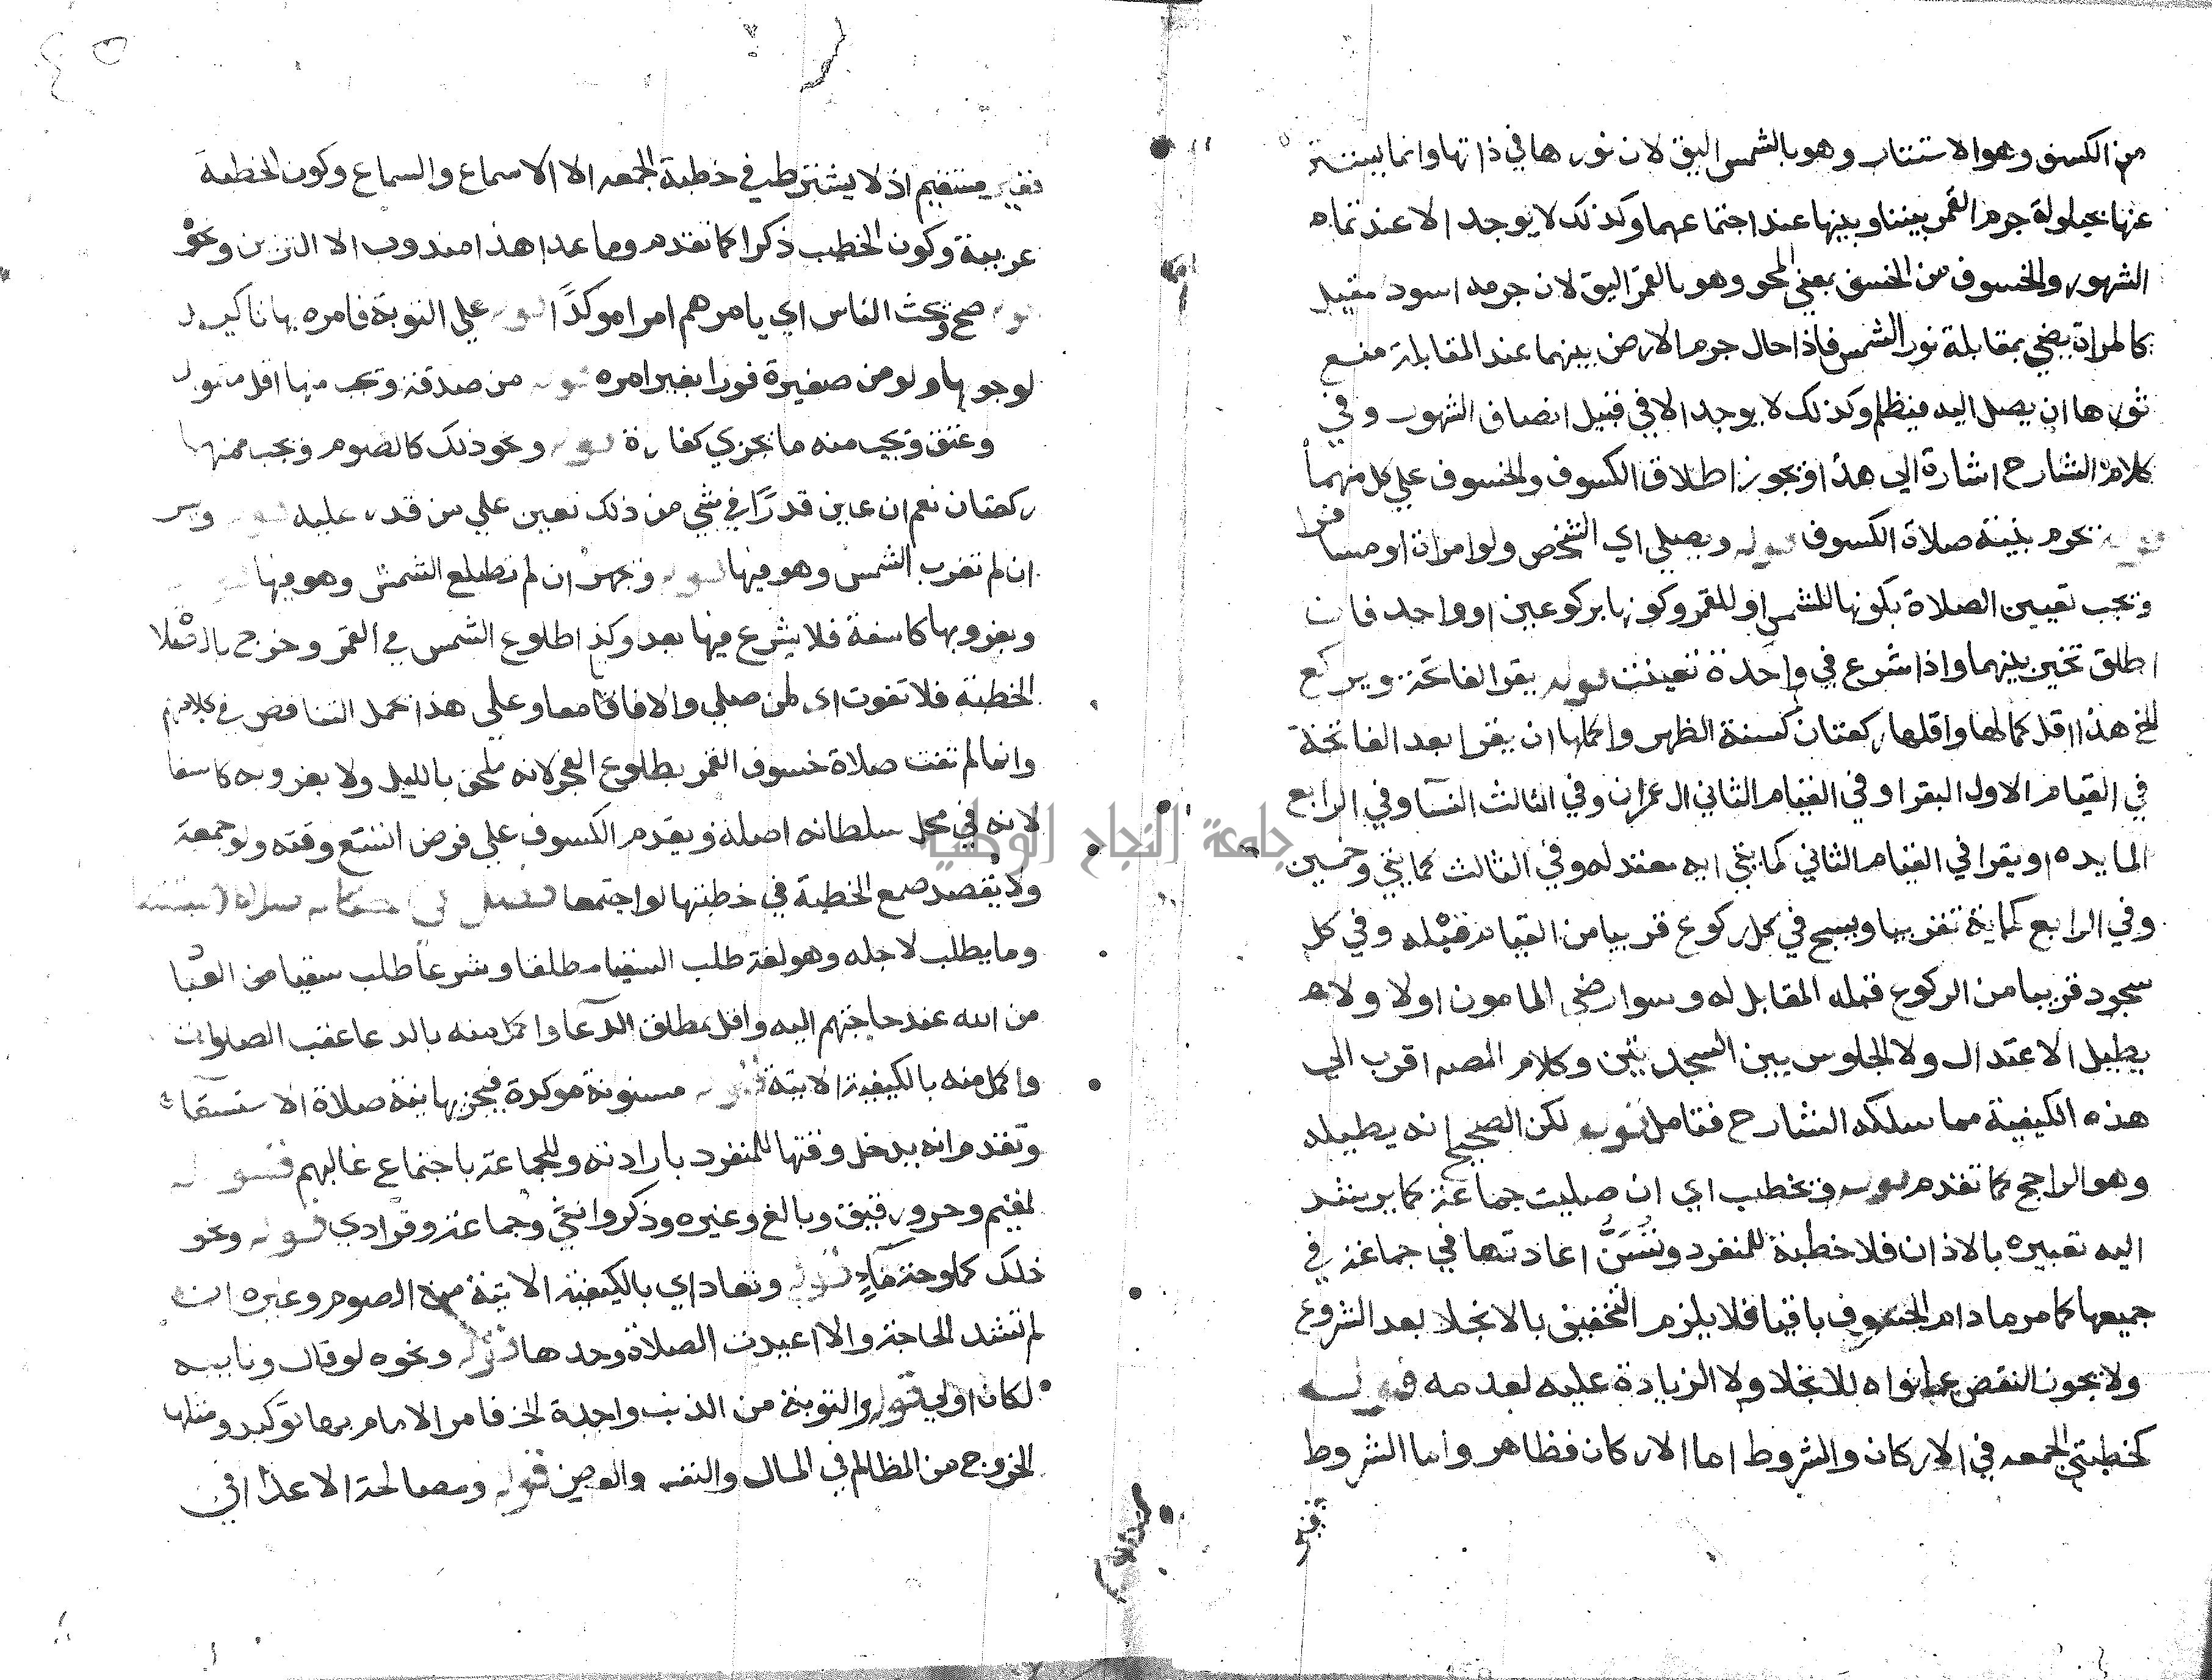 من الكسف وهو الاستتار وهو بالشمس اليق لان نورها في ذاتها وانما يستتر
عنها بحيلولة جرم القمر بيننا وبينها عند اجتماعهما وكذلك لا يوجد الا عند تمام
الشهور والخسوف من الخسف بمعني المحو وهو بالقمر اليق لان جرمه اسود صقيل
كالمراة يضي بمقابلة نور الشمس فاذا حال جرم الارض بينهما عند المقابلة منع
نورها ان يصل اليه فيظلم وكذلك لا يوجد الا في قبيل انصاف الشهور وفي
كلام الشارح اشارة الي هذا ويجوز اطلاق الكسوف والخسوف علي كل منهما
قوله تحرم بنية صلاة الكسوف قوله ويصلي اي الشخص ولو امراة او مسافرا
ويجب تعيين الصلاة بكونها للشمس او للقمر وكونها بركوعين او واحد فان
اطلق تخير بينهما واذا شرع في واحدة تعينت قوله يقرا الفاتحة ويركع
الخ هذا اقل كمالها واقلها ركعتان كسنة الظهر واكملها ان يقرا بعد الفاتحة
في القيام الاول البقرا وفي القيام الثاني ال عمران وفي الثالث النسآ وفي الرابع
المايده او يقرا في القيام الثاني كمايتي ايه معتدله وفي الثالث كمايتي وخمسين
وفي الرابع كماية تقريبا ويسبح في كل ركوع قريبا من القيام قبله وفي كل
سجود قريبا من الركوع قبله المقابل له وسوا رضي المامون اولا ولا
يطيل الاعتدال ولا الجلوس بين السجدتين وكلام المصـ اقرب الي
هذه الكيفية مما سلكه الشارح فتامل قوله لكن الصحيح انه يطيله
وهو الراجح كما تقدم قوله ويخطب اي ان صليت جماعة كما يرشد
اليه تعبيره بالاذان فلا خطبة للمنفرد وتُسَنُّ اعادتها في جماعة في
جميعها كما مر مادام الخسوف باقيا فلا يلزم التخفيف بالانجلا بعد الشروع
ولا يجوز النقص عما نواه للانجلا ولا الزيادة عليه لعدمه قوله
كخطبتي الجمعه في الاركان والشروط اما الاركان فظاهر واما الشروط
فغير مستقيم اذ لا يشترط في خطبة الجمعه الا الاسماع والسماع وكون الخطبة
عربية وكون الخطيب ذكرا كما تقدم وما عدا هذا مندوب الا التزين ونحوه
قوله ويحث الناس اي يامرهم امرا موكدًا قوله علي التوبة فامره بها تاكيد
لوجوبها ولو من صغيرة فورا بغير امره قوله من صدقة ويجب منها اقل متمول
وعتق ويجب منه ما يجزي كفارة قوله ونحو ذلك كالصوم ويجب منها
ركعتان نعم ان عين قدرًا في شي من ذلك تعين علي من قدر عليه قوله
ان لم تغرب الشمس وهو فيها قوله ويجهر ان لم تطلع الشمس وهو فيها
وبغروبها كاسفة فلا يشرع فيها بعد وكذا طلوع الشمس في القمر وخرج بالصلاة
الخطبة فلا تفوت اي لمن صلي والا فاتا معا وعلي هذا يحمل التناقض في كلامهم
وانما لم تفت صلاة خسوف القمر بطلوع الفجر لانه ملحق بالليل ولا بغروبه كاسفا
لانه في محل سلطانه اصله ويقدم الكسوف علي فرض اتسع وقته ولو جمعة
ولا يقصد مع الخطبة في خطبتها لو اجتمعا فصل في احكام صلاة الاستسقا
وما يطلب لاجله وهو لغة طلب السقيا مطلقا وشرعاً طلب سقيا من العباد
من الله عند حاجتهم اليه واقله مطلق الدعا واكمل منه بالدعا عقب الصلوات
واكمل منه بالكيفية الاتية قوله مسنونة موكدة فيحرم بها بنية صلاة الاستسقا
وتقدم انه يدخل وقتها للمنفرد بارادته وللجماعة باجتماع غالبهم قوله
لمقيم وحر ورقيق وبالغ وغيره وذكر وانثي وجماعة وفرادي قوله ونحو
ذلك كملوحة مآء قوله وتعاد اي بالكيفية الاتية من الصوم وغيره ان
لم تشتد الحاجة والا اعيدت الصلاة وحدها قوله ونحوه لو قال ونايبه
لكان اولي قوله والتوبة من الذنب واجبة الخ فامر الامام بها توكيد ومثلها
الخروج من المظالم في المال والنفس والعرض قوله ومصالحة الاعدا في